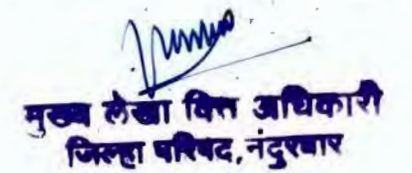 मुख्य लेखा वित्त अधिकारी
जिल्हा परिषद, नंदुरबार